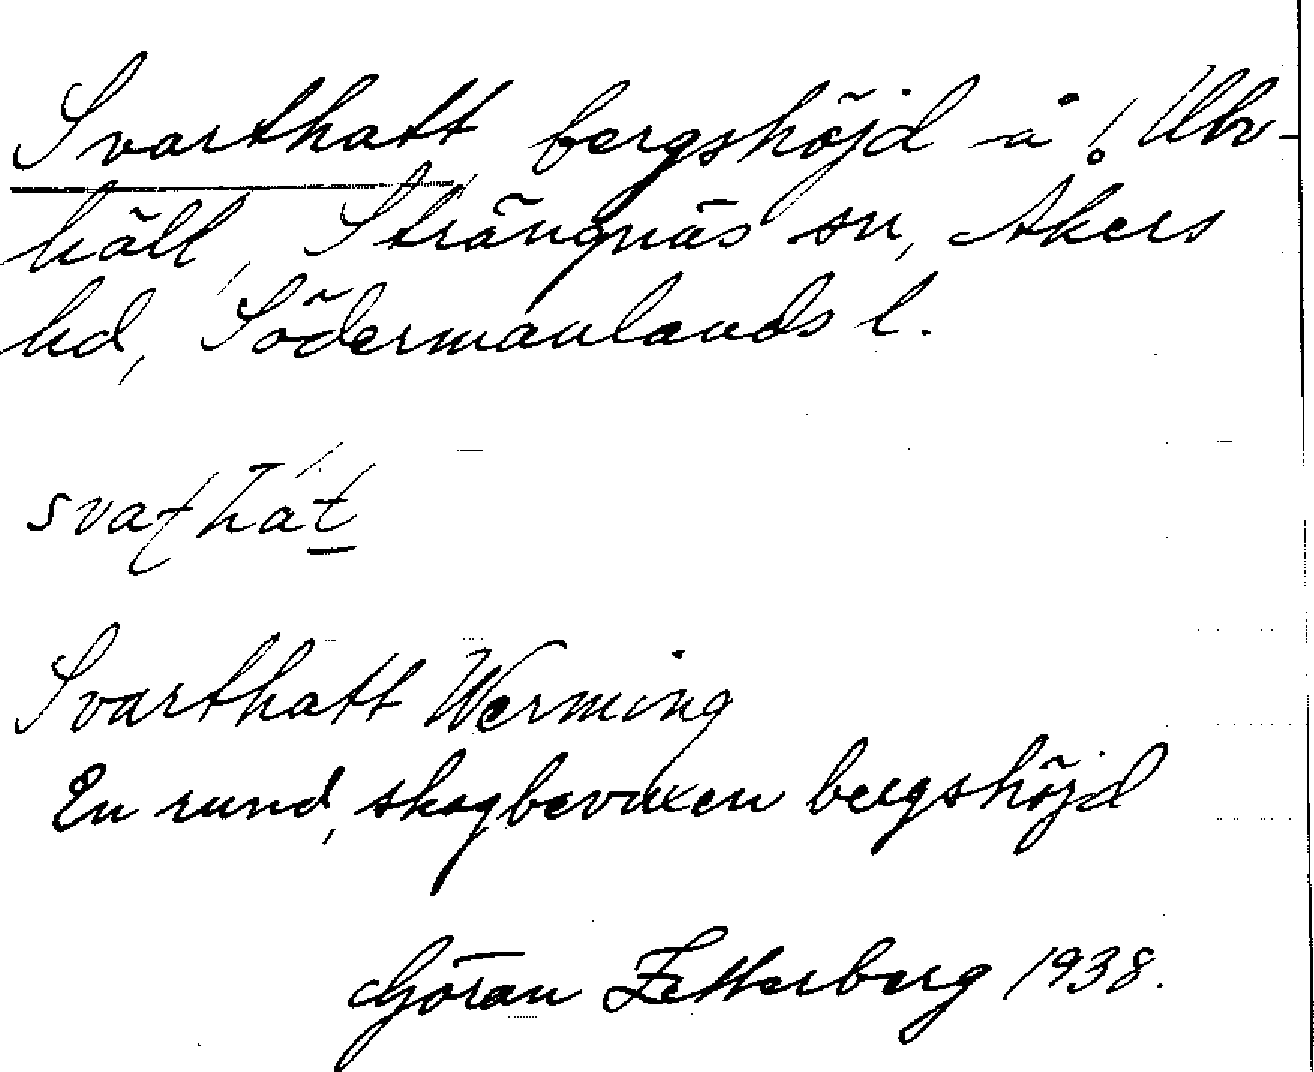 Svarthatt bergshöjd å ! Ulv-
häll, Strängnäs sn, Åkers
hd, Södermanlands l.
Svarthatt Werming
En rund, skogbevuxen bergshöjd
Göran Zetterberg 1938.